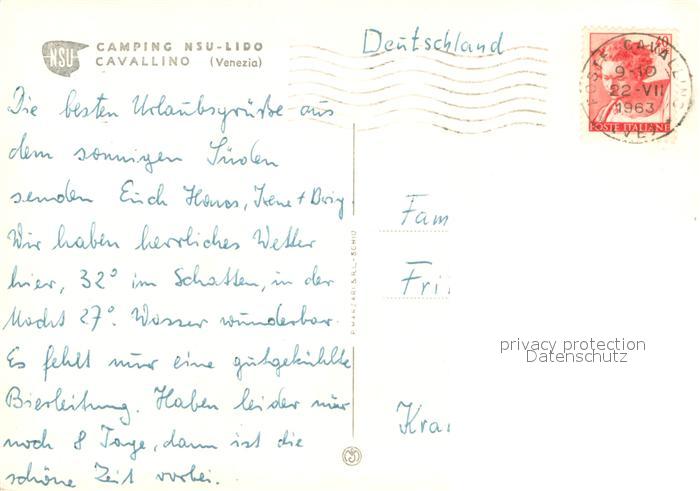 NSU
CAMPING NSU-LIDO
CAVALLINO (Venezia)
Deutschland
40
POSTE CAVALLINO
9-10
22-VII
1963
(VE)
POSTE ITALIANE
Die besten Urlaubsgrüße aus
dem sonnigen Süden
senden Euch Hanos, Irene +
Wir haben herrliches Wetter
hier, 32° im Schatten, in der
Nacht 27°. Wasser wunderbar.
Es fehlt nur eine gutgekühlte
Bierleitung. Haben leider nur
noch 8 Tage, dann ist die
schöne Zeit vorbei.
Fam
Fri
Kra
privacy protection
Datenschutz